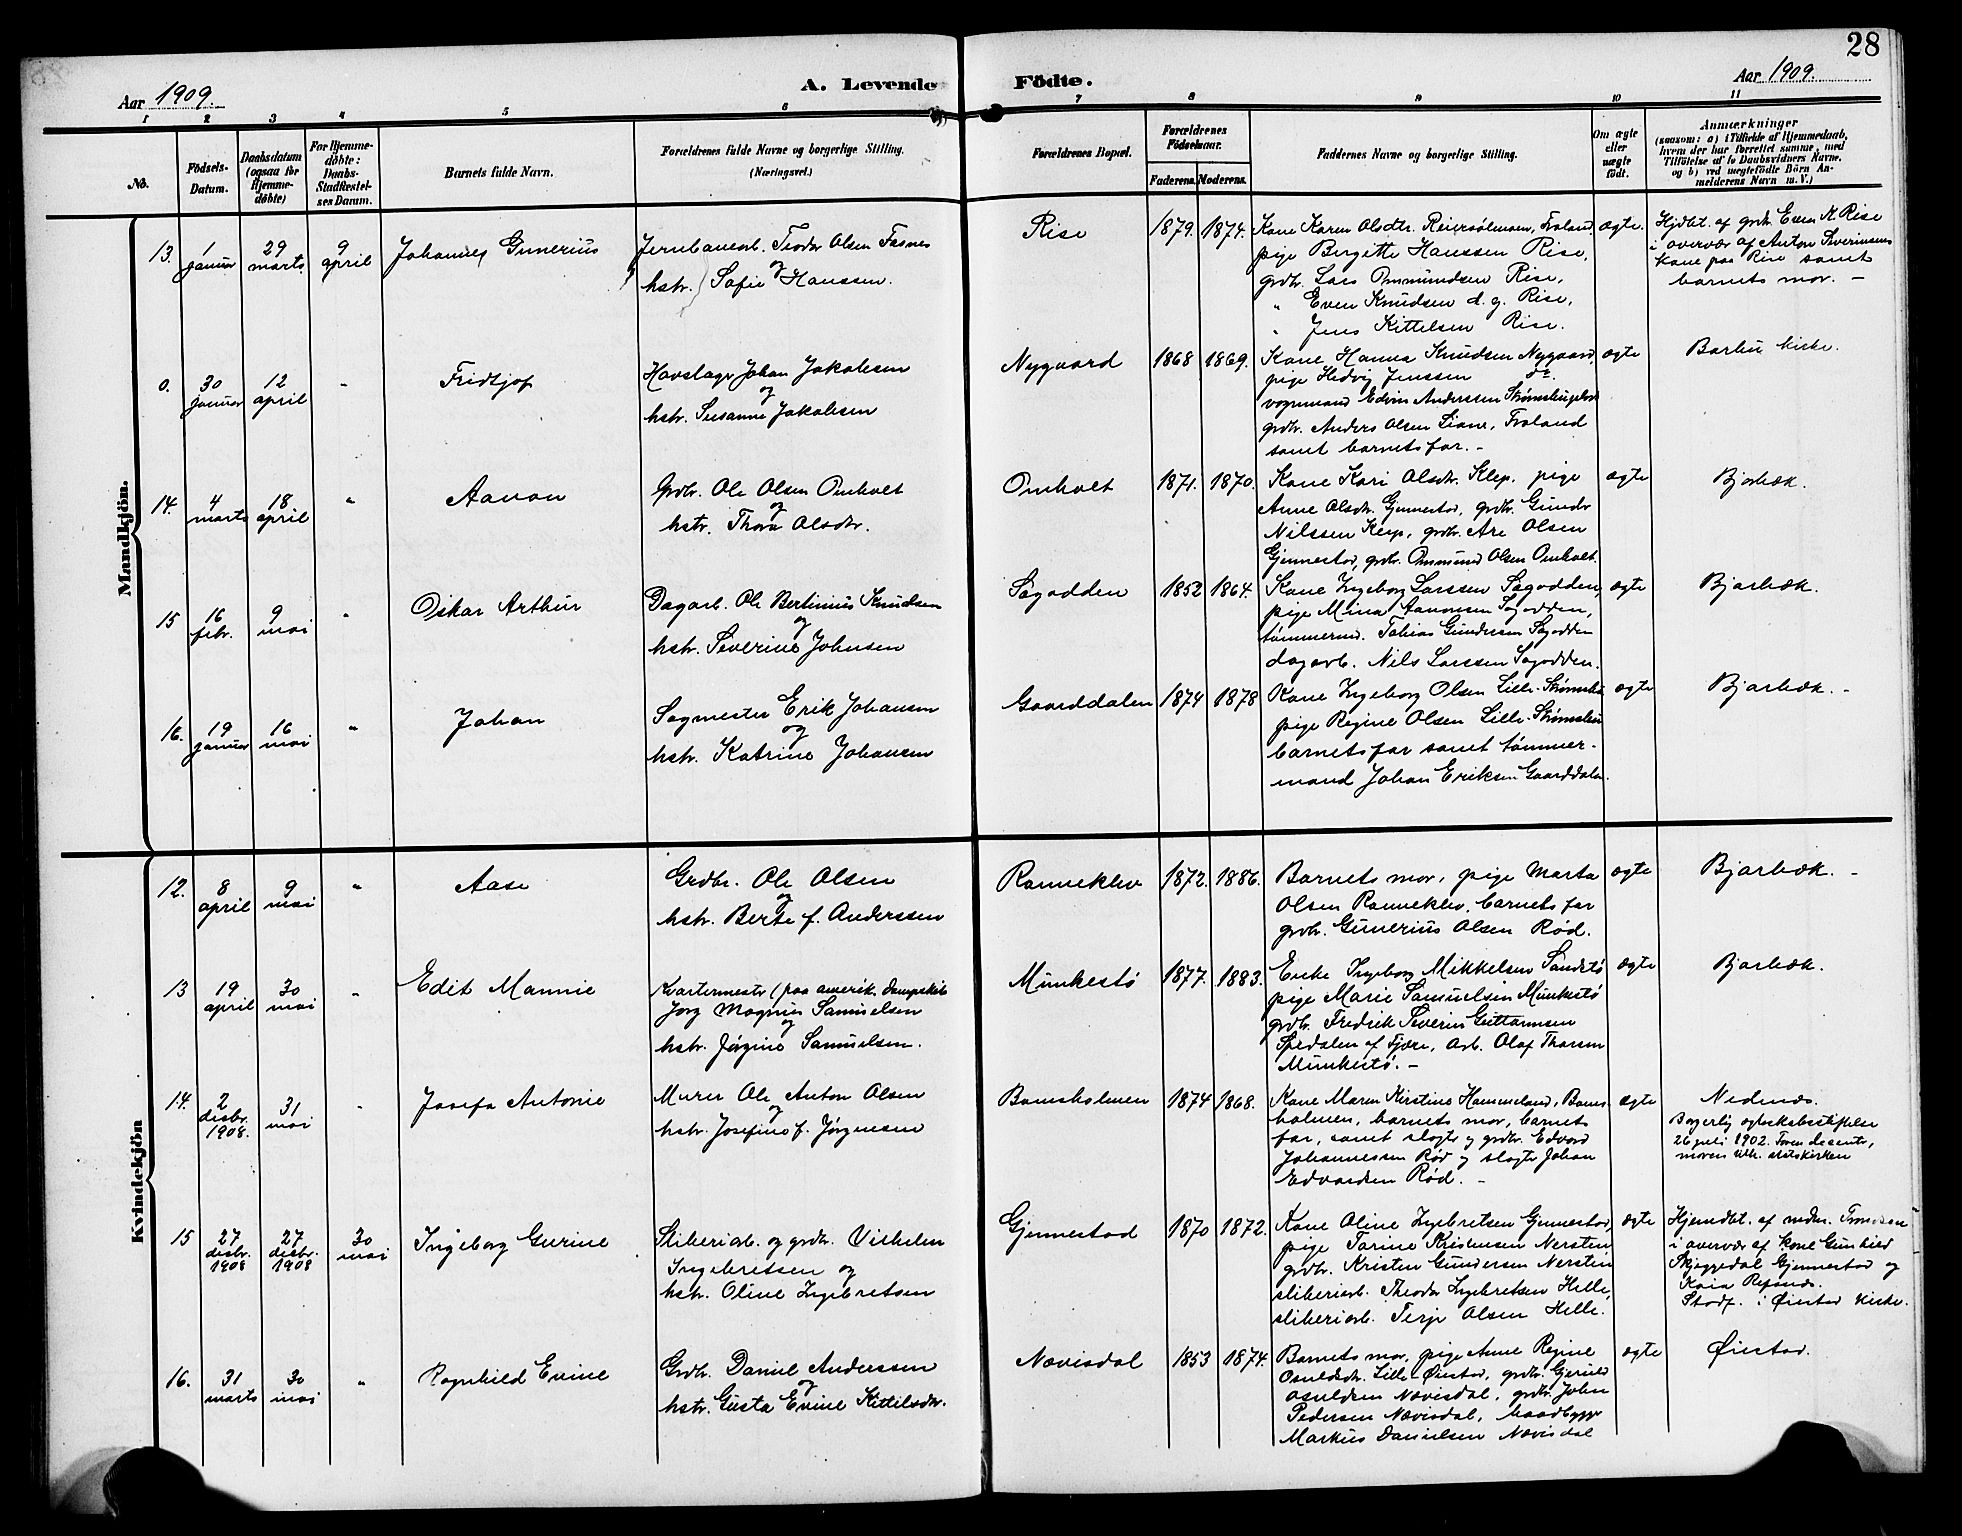 28
Aar 1909.
A. Levende Födte.
Aar 1909.
1 2 3 4 5 6 7 8 9 10 11
No.
Födsels-Datum.
Daabsdatum (ogsaa for Hjemme-döbte)
For Hjemme-döbte: Daabs-Stadfæstel-ses Datum.
Barnets fulde Navn.
Forældrenes fulde Navne og borgerlige Stilling.
(Næringsvei.)
Forældrenes Bopæl.
Forældrenes Födselsaar.
Faderens. Moderens.
Faddernes Navne og borgerlige Stilling.
Om ægte eller uægte födt.
Anmærkninger
(saasom: a) i Tilfælde af Hjemmedaab, hvem der har forrettet samme, med Tilföielse af to Daabsvidners Navne, og b) ved uægtefödte Börn An-melderens Navn m. V.)
Mandkjön.
13. 1 januar 29 marts 9 april Johannes Gunerius
Jernbanearb. Teodor Olsen Fasnes
og
hstr. Sofie Hanssen.
Rise 1879. 1874.
Kone Karen Olsdtr. Reiersölmoen, Froland
pige Bergette Hanssen Rise,
grdbr. Lars Ommundsen Rise,
" Even Knudsen d. y. Rise,
" Jens Kittelsen Rise.
ægte.
Hjdbt. af grdr. Even K Rise
i overvær af Anton Severinsens
kone paa Rise samt
barnets mor. -
0. 30 januar 12 april " Fridtjof
Havslager Johan Jakobsen
og
hstr. Susanne Jakobsen
Nygaard 1868 1869.
Kone Hanna Knudsen Nygaard,
pige Hedvig Jenssen do.
vognmand Edvin Anderssen
grdbr. Anders Olsen Liane, Froland
samt barnets far. -
ægte
Barbu kirke.
14. 4 marts 18 april " Aanon
Grdbr. Ole Olsen Omholt
og
hstr. Thora Olsdtr.
Omholt 1871. 1870.
Kone Kari Olsdtr. Klep, pige
Anne Olsdtr. Gjennestad, grdbr. Gunder
Nilssen Klep, grdbr. Are Olsen
Gjennestad, grdbr. Ommund Olsen Omholt.
ægte
Bjorbæk.
15 16 febr. 9 mai " Oskar Arthur
Dagarb. Ole Bertinius Knudsen
og
hstr. Severine Johnsen
Sagodden 1852 1864.
Kone Ingeborg Larssen Sagodden,
pige Mina Aanonsen Sagodden,
tömmermd. Tobias Gundersen Sagodden
dagarb. Nils Larssen Sagodden.
ægte
Bjorbæk.
16. 19 januar 16 mai " Johan
Sagmester Erik Johansen
og
hstr. Katrine Johansen
Gaarddalen 1874 1878
Kone Ingeborg Olsen Lille-Strömsbu
pige Regine Olsen Lille-Strömsbu
barnets far samt tömmer-
mand Johan Eriksen Gaarddalen.
ægte
Bjorbæk. -
Kvindekjön
12. 8 april 9 mai " Aase
Grdbr. Ole Olsen
og
hstr. Berte f. Anderssen
Ranneklev 1872. 1886.
Barnets mor, pige Marta
Olsen Ranneklev, barnets far
grdbr. Gunerius Olsen Röd.
ægte
Bjorbæk. -
13 19 april 30 mai " Edit Mannie
Kvartermester (paa amerik. dampskib
Jörg Magnus Samuelsen
og
hstr. Jörgine Samuelsen.
Munkestö 1877. 1883.
Enke Ingeborg Mikkelsen Sandstö
pige Marie Samuelsen Munkestö
grdbr. Fredrik Severin Guttormsen
Spedalen af Fjære, Arb. Olaf Thorsen
Munkestö. -
ægte
Bjorbæk.
14. 2 desbr. 1908. 31 mai " Josefa Antonie
Murer Ole Anton Olsen
og
hstr. Josefine f. Jörgensen
Bomsholmen 1874 1868.
Kone Maren Kirstine Hammeland, Boms-
holmen, barnets mor, barnets
far, samt slagter og grdbr. Edvard
Johannessen Röd og slagter Johan
Edvardsen Röd. -
ægte
Nedenæs.
Borgerlig egteskabsstiftelse
26 juli 1902. Faren dissenter,
moren tilh. statskirken
15 27 desbr. 1908 27 desbr. 1908 30 mai Ingeborg Gurine
Sliberiarb. og grdbr. Vilhelm
Ingebretsen og
hstr. Oline Ingebretsen
Gjennestad 1870 1872.
Kone Oline Ingebretsen Gjennestad,
pige Tarine Kristensen Nersten
grdbr. Kristen Gundersen Nersten
sliberiarb. Theodor Ingebretsen Helle,
sliberiarb. Terje Olsen Helle.
ægte
Hjemdbt. af Trondsen
i overvær af kone Gunhild
Skjeggedal Gjennestad og
Kaia Refsnæs.
Stadf. i Öiestad kirke.
16. 31 marts 30 mai " Ragnhild Evine
Grdbr. Daniel Anderssen
og
hstr. Gusta Evine Kittilsdtr.
Nævisdal 1853 1874.
Barnets mor, pige Anne Regine
Osuldsdtr. Lille Öiestad, grdbr. Gjeruld
Osuldsen Nævisdal, grdbr. John
Pedersen Nævisdal, baadbygger
Markus Danielsen Nævisdal
ægte
Öiestad.